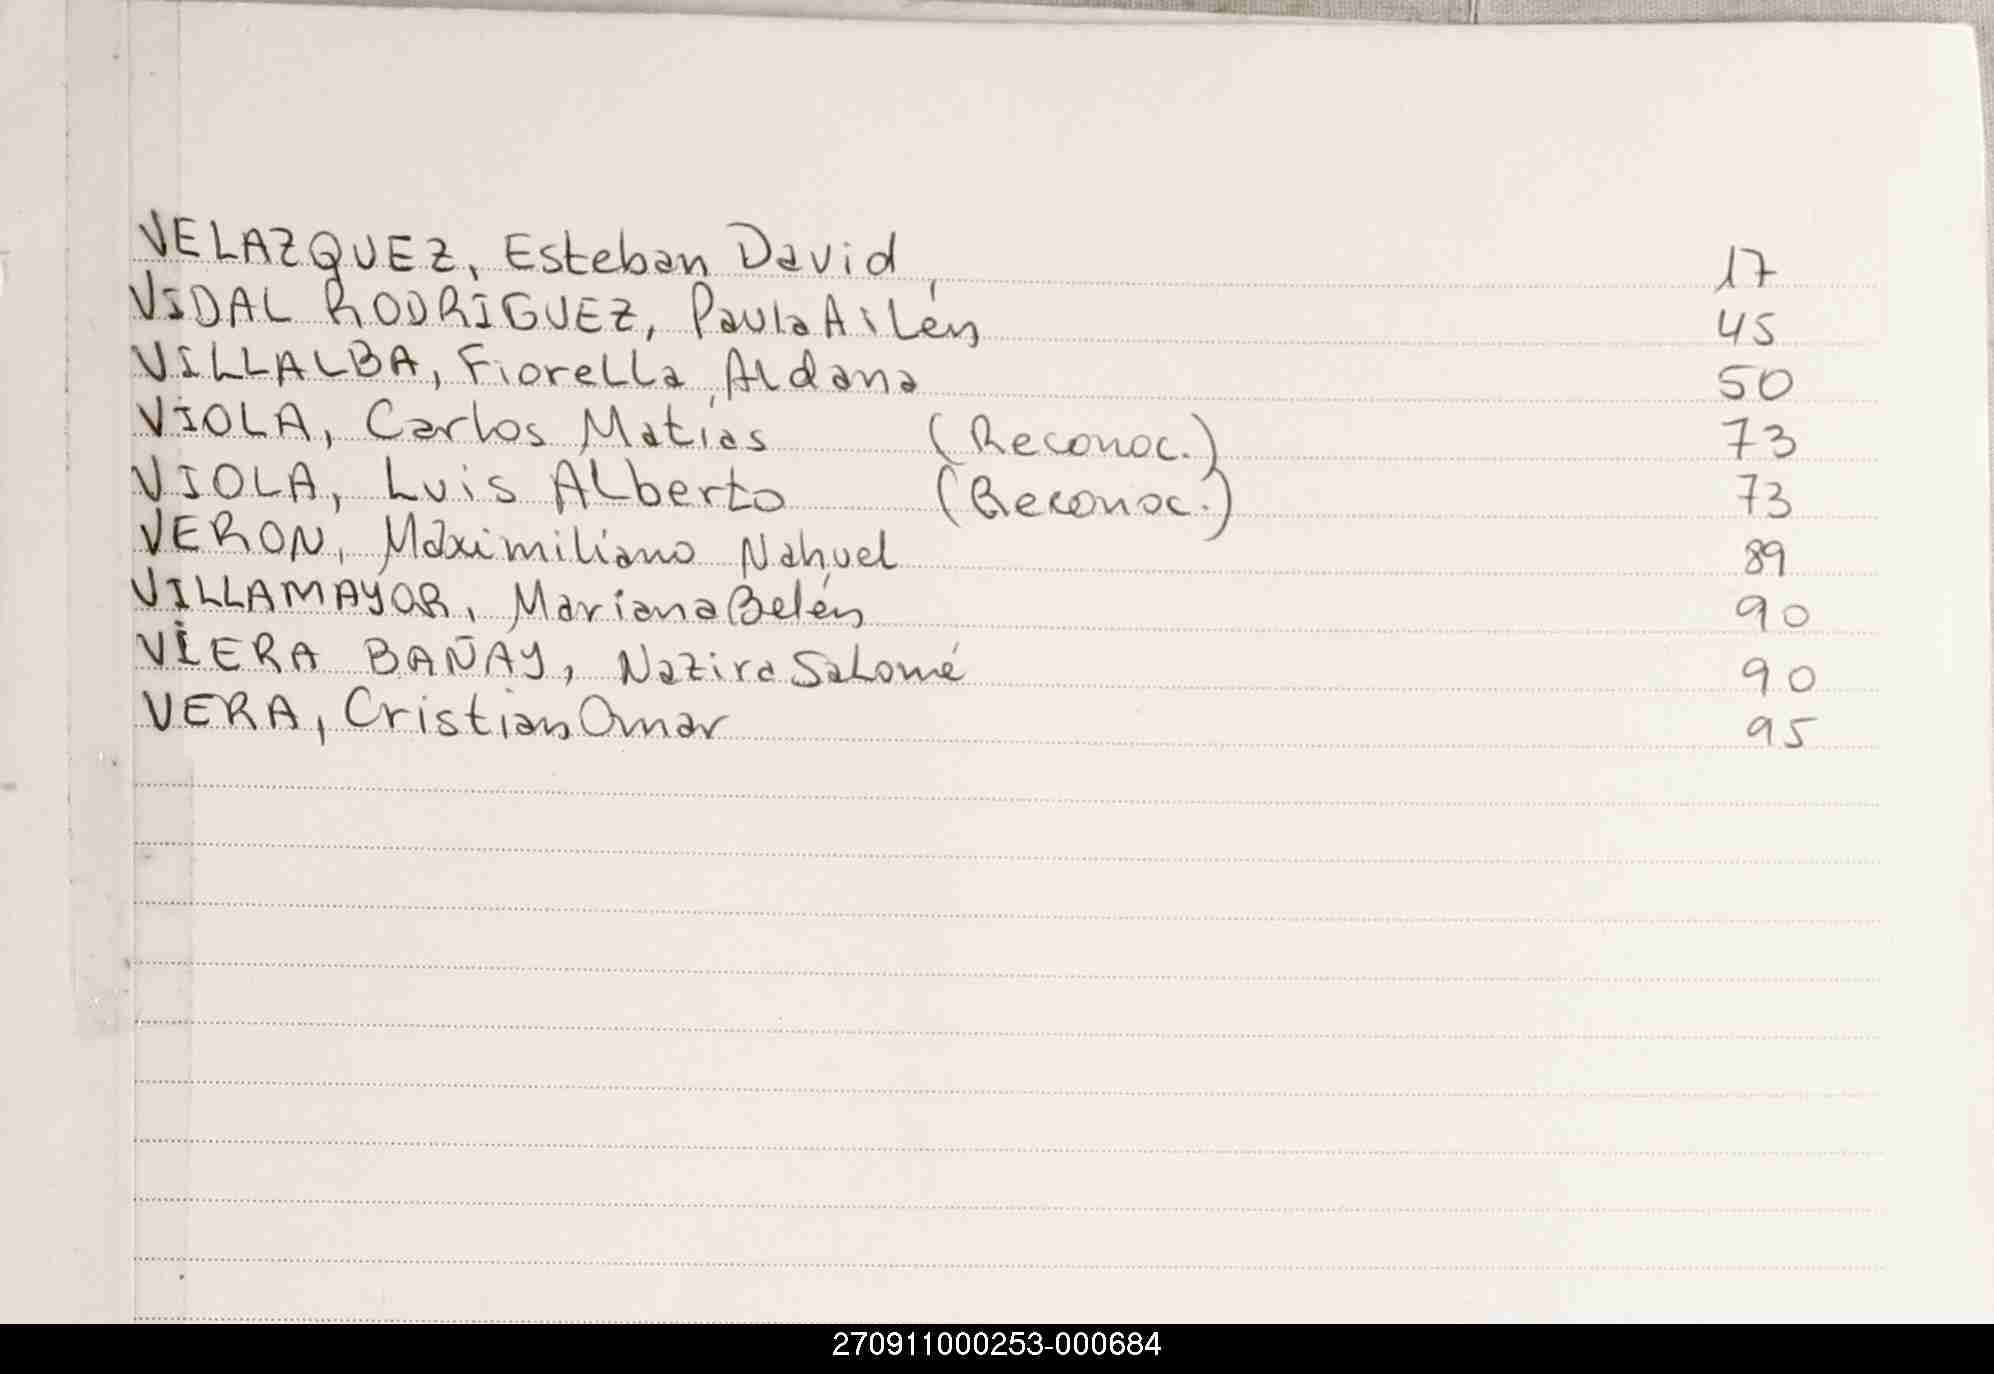 VELAZQUEZ, Esteban David 17
VIDAL RODRIGUEZ, Paula Ailén 45
VILLALBA, Fiorella Aldana 50
VIOLA, Carlos Matías (Reconoc.) 73
VIOLA, Luis Alberto (Reconoc.) 73
VERON, Maximiliano Nahuel 89
VILLAMAYOR, Mariana Belén 90
VIERA BAÑAY, Nazira Salomé 90
VERA, Cristian Omar 95
270911000253-000684